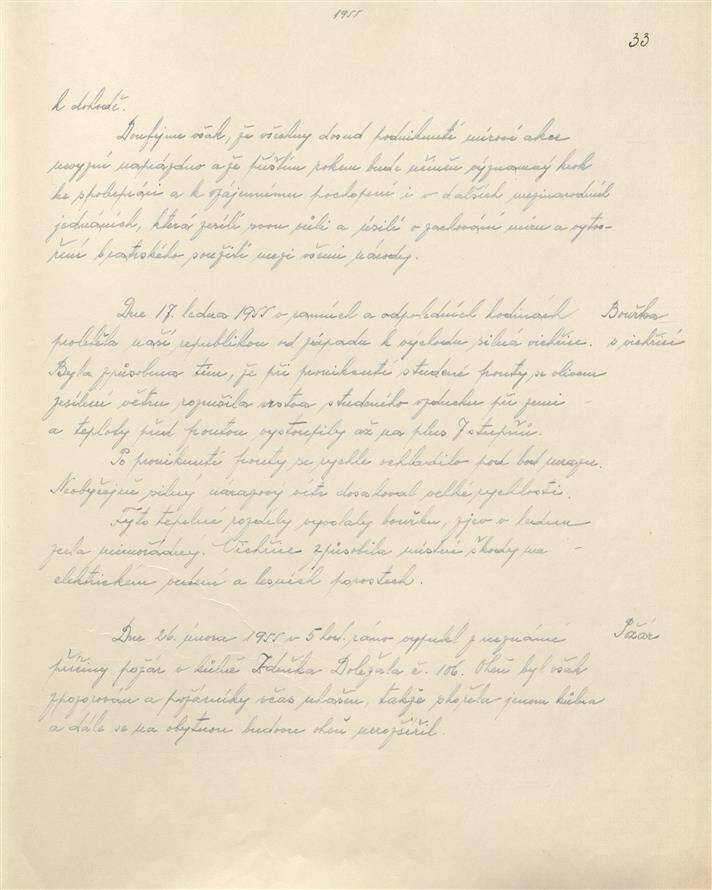 1955
33
k dohodě.
Doufejme však, že všechny dosud podniknuté mírové akce
nevyzní naprázdno a že příštím rokem bude učiněn významný krok
ke spolupráci a k vzájemnému pochopení i v dalších mezinárodních
jednáních, která zesílí svou vůli a úsilí o zachování míru a vytvo-
ření bratrského soužití mezi všemi národy.
Dne 17. ledna 1955 v ranních a odpoledních hodinách Bouřka
proletěla naší republikou od západu k východu silná vichřice. s vichřicí
Byla způsobena tím, že při proniknutí studené fronty se vlivem
zesílení větru rozrušila vrstva studeného vzduchu při zemi -
a teploty před frontou vystoupily až na plus 7 stupňů.
Po proniknutí fronty se rychle ochladilo pod bod mrazu.
Neobyčejně silný nárazový vítr dosahoval velké rychlosti.
Tyto tepelné rozdíly vyvolaly bouřku, zjev v lednu
zcela mimořádný. Vichřice způsobila místní škody na -
elektrickém vedení a lesních porostech.
Dne 26. února 1955 v 5 hod. ráno vypukl z neznámé Požár
příčiny požár v kůlně Zdeňka Doležala č. 106. Oheň byl však
zpozorován a požárníky včas uhašen, takže shořela jenom kůlna
a dále se na obytnou budovu oheň nerozšířil.